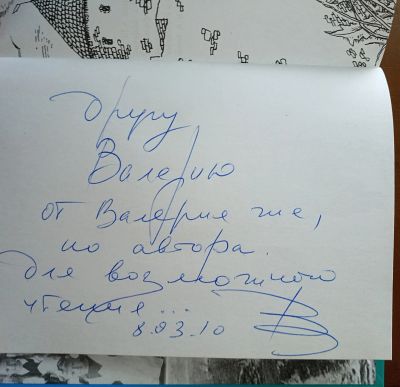 другу
Валерию
от Валерия же,
но автора.
Для возможного
чтения...
8.03.10